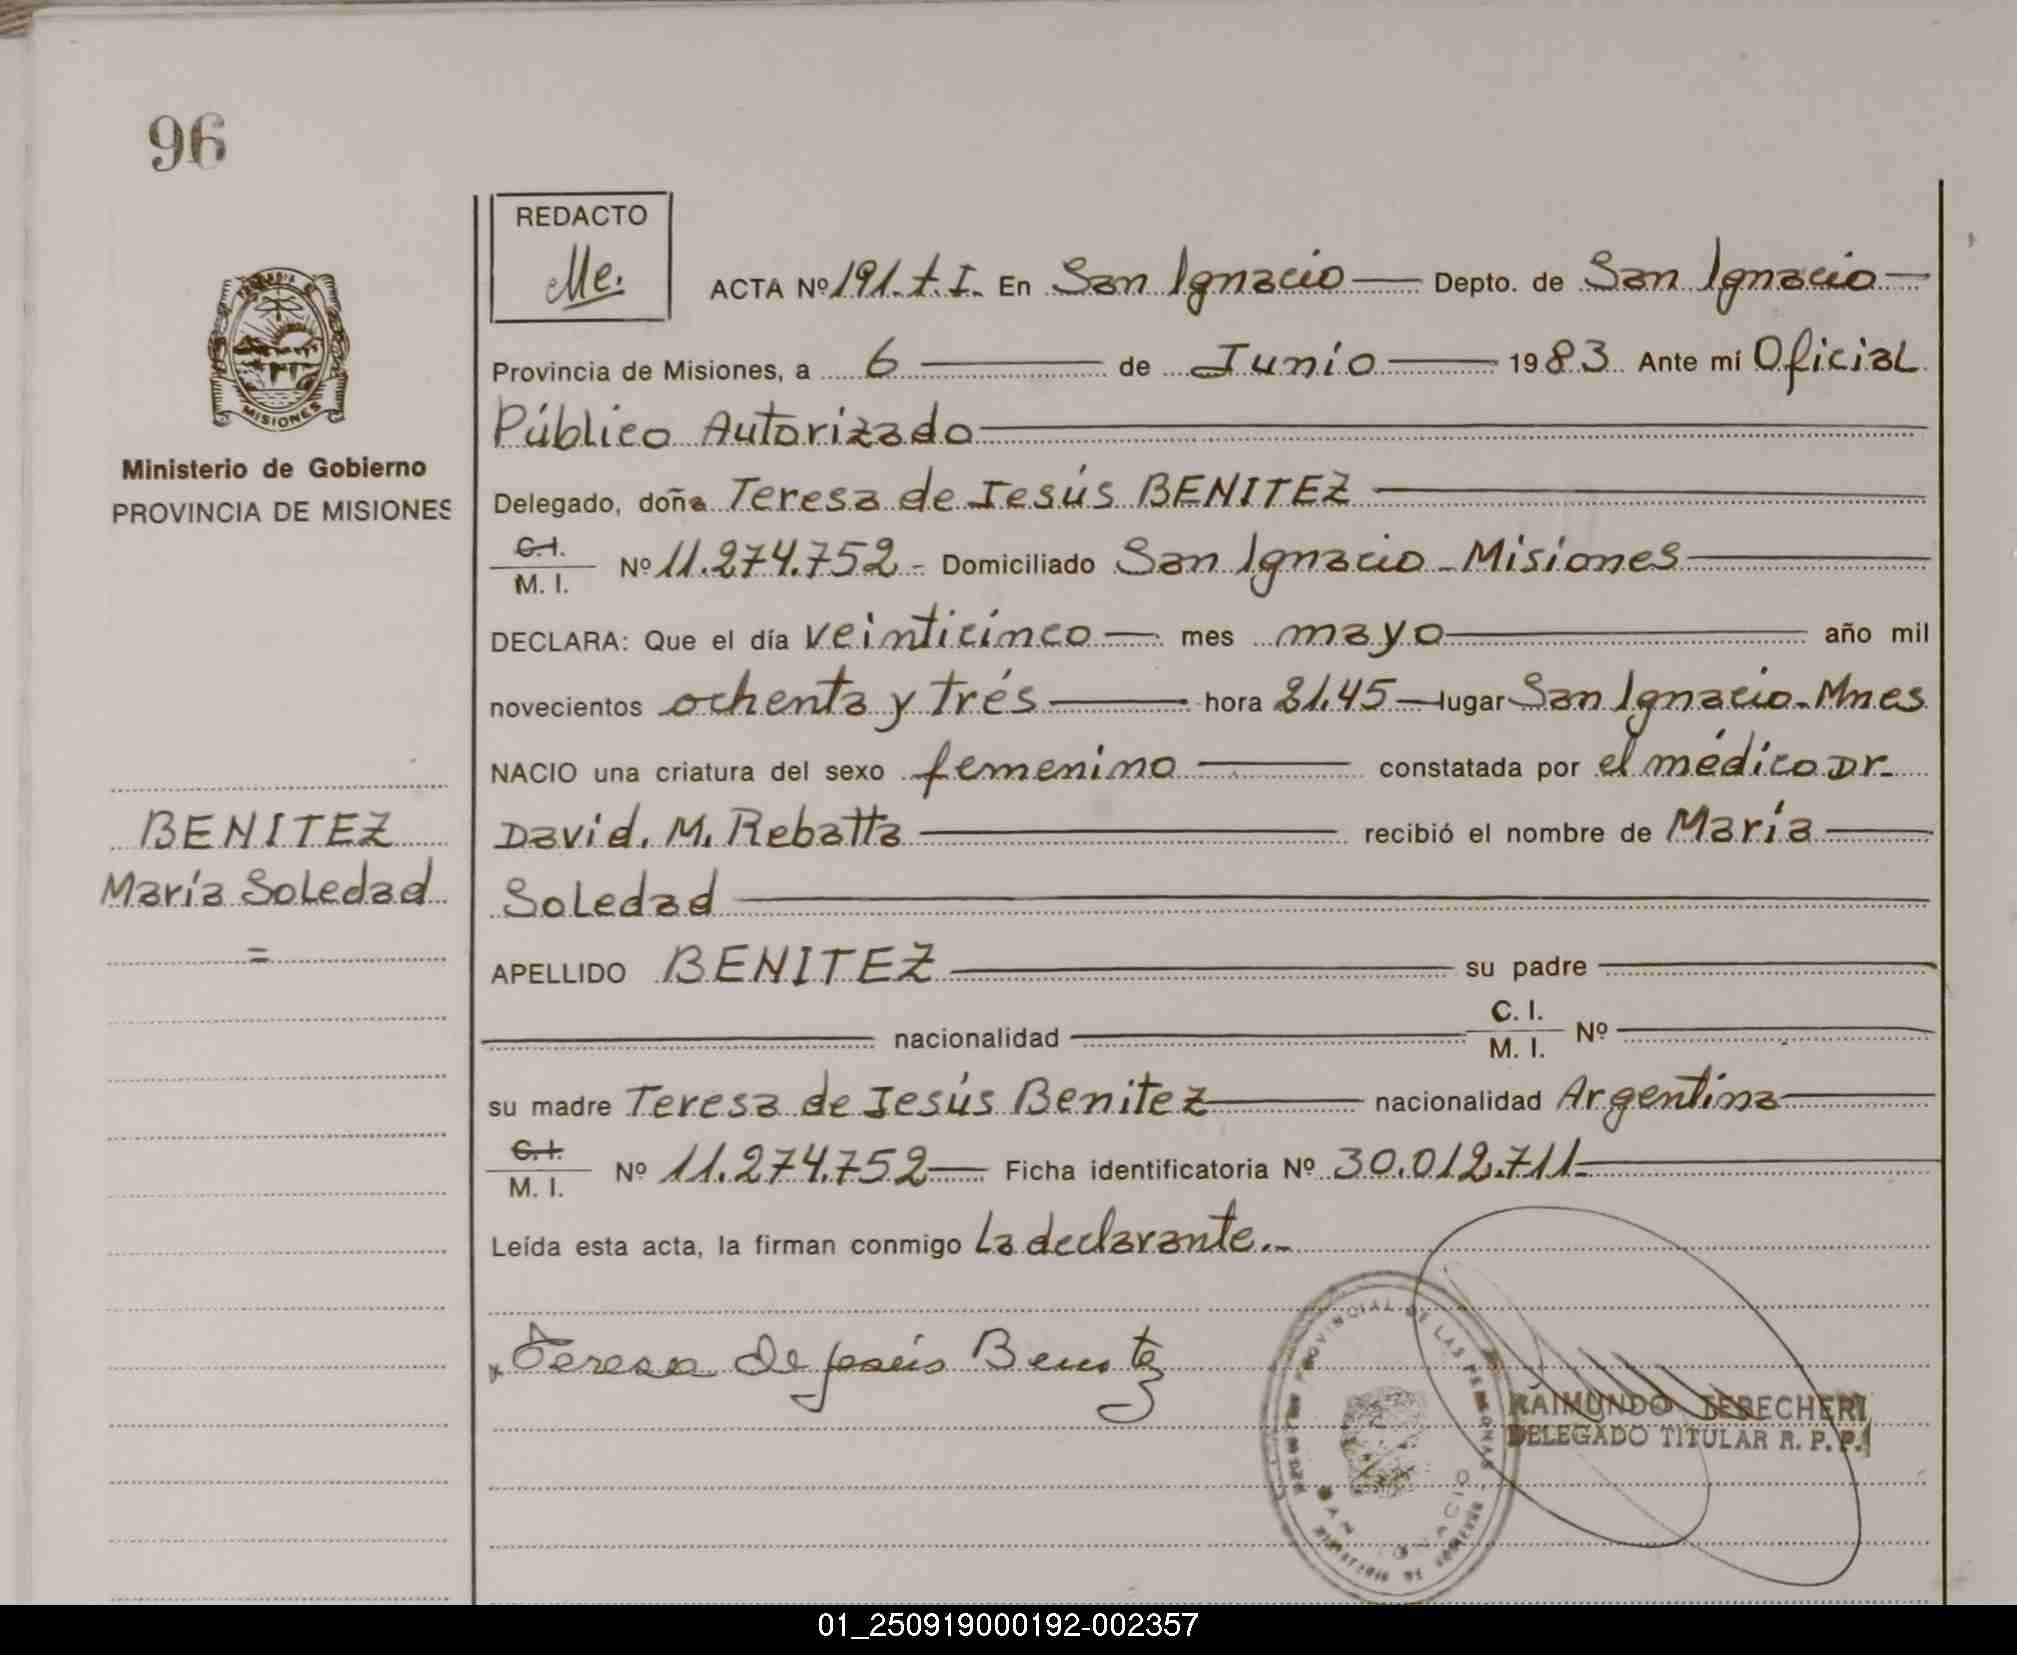 96
REDACTO
Me.
ACTA Nº 191. t. I. En San Ignacio Depto. de San Ignacio
Provincia de Misiones, a 6 de Junio 1983. Ante mí Oficial
Público Autorizado
MISIONES
Ministerio de Gobierno
PROVINCIA DE MISIONES
Delegado, doña Teresa de Jesús BENITEZ
C.I.
M. I. Nº 11.274.752 - Domiciliado San Ignacio - Misiones
DECLARA: Que el día veinticinco mes mayo año mil
novecientos ochenta y trés hora 21.45 lugar San Ignacio - Mnes
NACIO una criatura del sexo femenino constatada por el médico Dr.
David. M. Rebatta recibió el nombre de María
Soledad
BENITEZ
María Soledad
=
APELLIDO BENITEZ su padre
nacionalidad C. I.
M. I. Nº
su madre Teresa de Jesús Benitez nacionalidad Argentina
C.I.
M. I. Nº 11.274.752 Ficha identificatoria Nº 30.012.711-
Leída esta acta, la firman conmigo La declarante.-
Teresa de Jesús Benitez
PROVINCIAL DE LAS PERSONAS
SAN IGNACIO
MINISTERIO DE GOBIERNO
RAIMUNDO TERECHERI
DELEGADO TITULAR R. P. P.
01_250919000192-002357